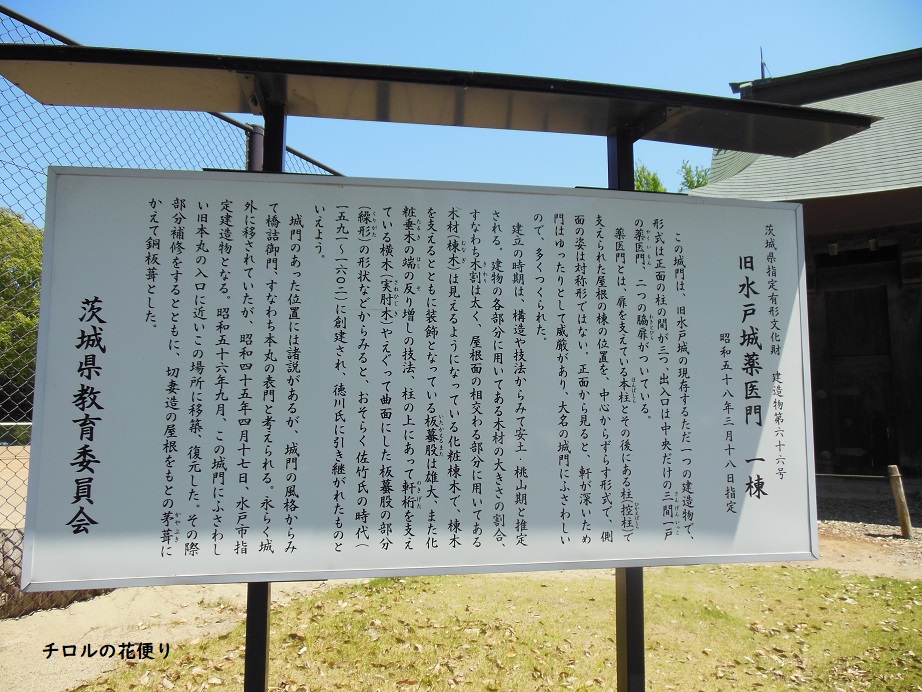 茨城県指定有形文化財　建造物第六十六号
旧水戸城薬医門　一棟
昭和五十八年三月十八日指定
この城門は、旧水戸城の現存するただ一つの建造物で、
形式は正面の柱の間が三つ、出入口は中央だけの三間一戸
の薬医門、二つの脇扉がついている。
薬医門とは、扉を支えている本柱とその後にある柱(控柱)で
支えられた屋根の棟の位置を、中心からずらす形式で、側
面の姿は対称形ではない。正面から見ると、軒が深いため
門はゆったりとして威厳があり、大名の城門にふさわしい
ので、多くつくられた。
建立の時期は、構造や技法からみて安土・桃山期と推定
される。建物の各部分に用いてある木材の大きさの割合、
すなわち木割は太く、屋根面の相交わる部分に用いてある
木材(棟木)は見えるようになっている化粧棟木で、棟木
を支えるとともに装飾となっている板蟇股は雄大、また化
粧垂木の端の反り増しの技法、柱の上にあって軒桁を支え
ている横木(実肘木)やえぐって曲面にした板蟇股の部分
(繰形)の形状などからみると、おそらく佐竹氏の時代(
一五九一〜一六〇二)に創建され、徳川氏に引き継がれたものと
いえよう。
城門のあった位置には諸説があるが、城門の風格からみ
て橋詰御門、すなわち本丸の表門と考えられる。永らく城
外に移されていたが、昭和四十五年四月十七日、水戸市指
定建造物となる。昭和五十六年九月、この城門にふさわし
い旧本丸の入口に近いこの場所に移築、復元した。その際
部分補修をするとともに、切妻造の屋根をもとの茅葺に
かえて銅板葺とした。
茨城県教育委員会
チロルの花便り